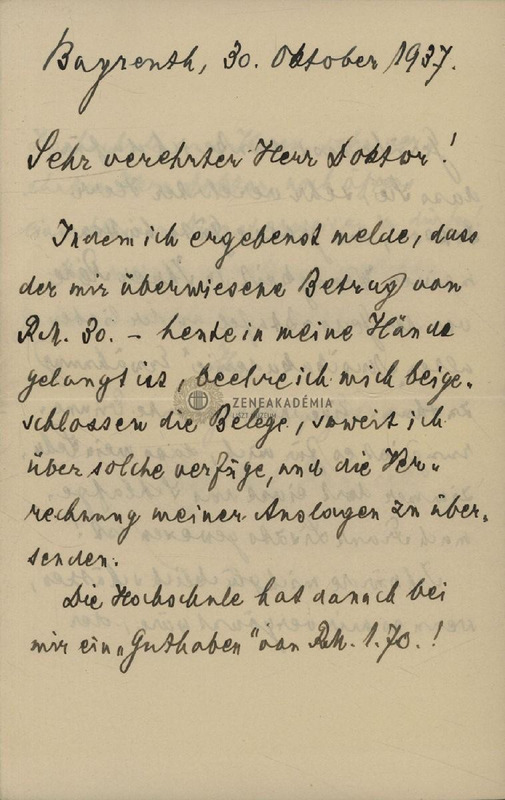 Bayreuth, 30. Oktober 1937.
Sehr verehrter Herr Doktor!
Indem ich ergebenst melde, dass
der mir überwiesene Betrag von
RM. 30. – heute in meine Hände
gelangt ist, beehre ich mich beige-
schlossen die Belege, soweit ich
ZENEAKADÉMIA
LISZT MÚZEUM
über solche verfüge, und die Ver-
rechnung meiner Auslagen zu über-
senden.
Die Hochschule hat danach bei
mir ein „Guthaben" von RM. 1.70.!